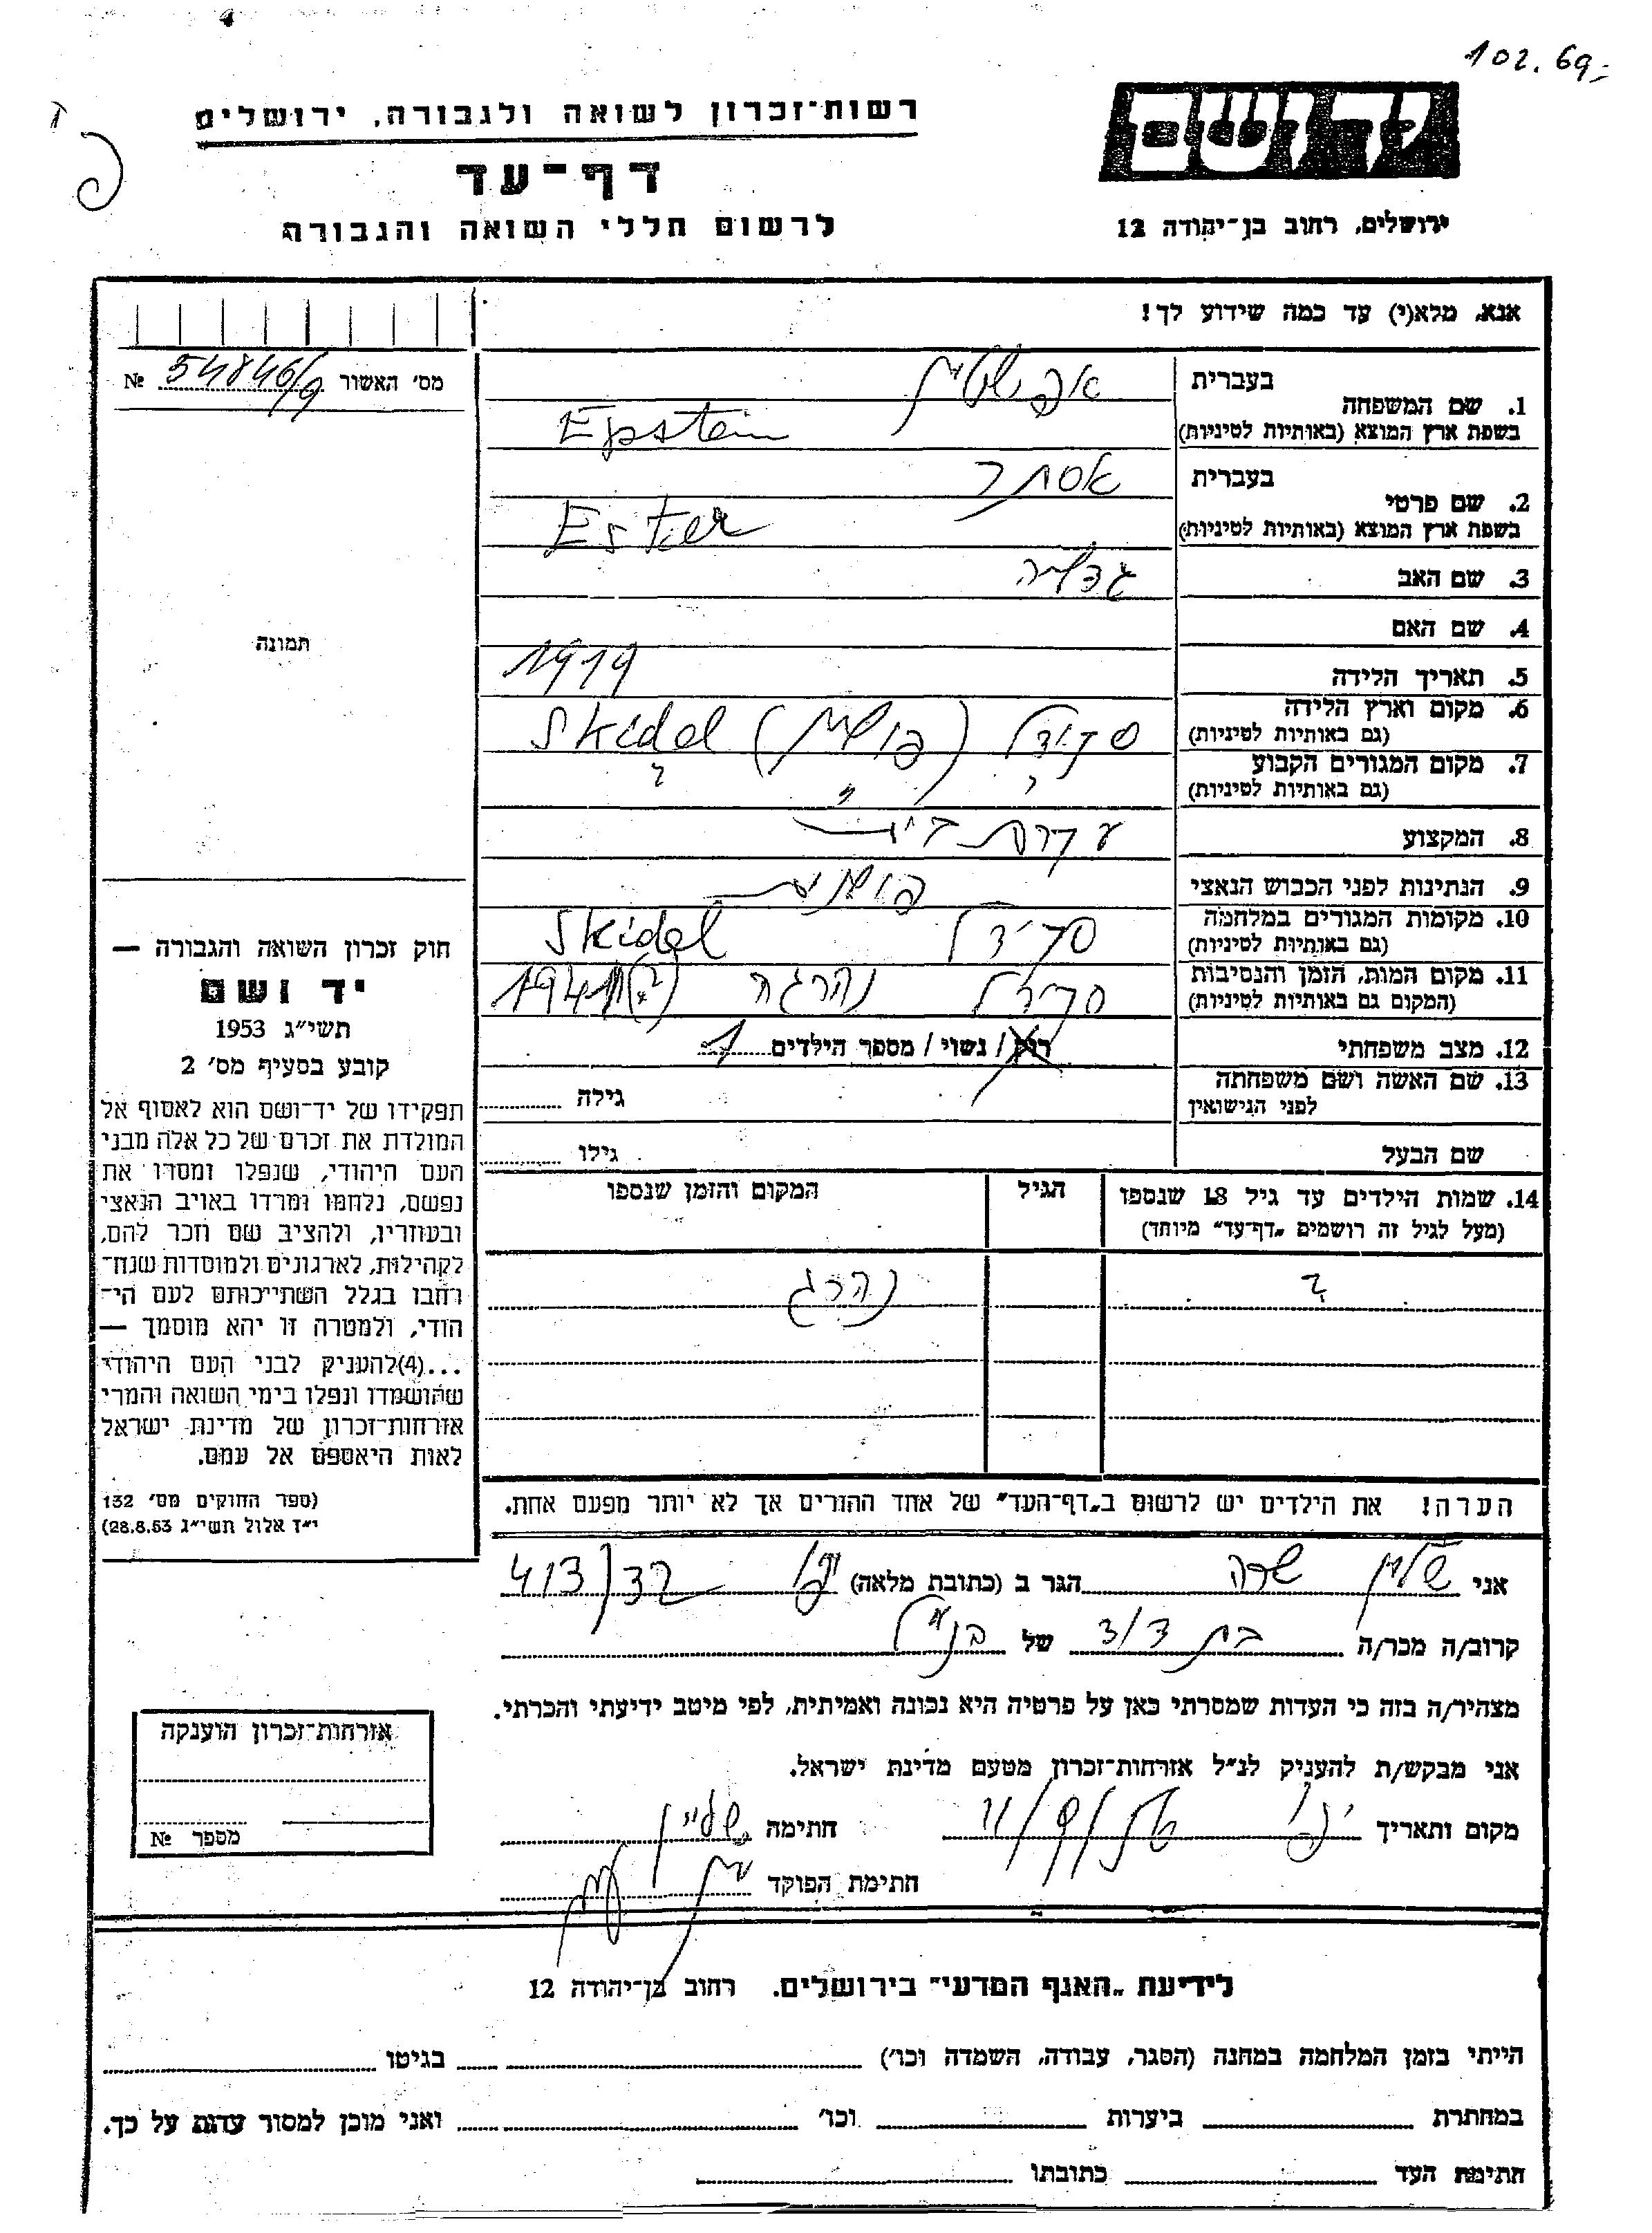 102.69,-
רשות־זכרון לשואה ולגבורה, ירושלים
יד ושם
דף־עד
לרשום חללי השואה והגבורה
ירושלים, רחוב בן־יהודה 12
אנא, מלא(י) עד כמה שידוע לך!
מס׳ האשור 54846/9 №
1. שם המשפחה
בעברית אפשטיין
בשפת ארץ המוצא (באותיות לטיניות) Epstein
2. שם פרטי
בעברית אסתר
בשפת ארץ המוצא (באותיות לטיניות) Ester
3. שם האב גדליה
4. שם האם
5. תאריך הלידה 1919
6. מקום וארץ הלידה
(גם באותיות לטיניות) סקידל (פולין) Skidel
7. מקום המגורים הקבוע
(גם באותיות לטיניות) " " ?
8. המקצוע עקרת בית
9. הנתינות לפני הכבוש הנאצי פולנית
10. מקומות המגורים במלחמה
(גם באותיות לטיניות) סקידל Skidel
11. מקום המות, הזמן והנסיבות
(המקום גם באותיות לטיניות) סקידל נהרגה 1941 (?)
12. מצב משפחתי רווק / נשוי / מספר הילדים 1
13. שם האשה ושם משפחתה
לפני הנישואין גילה
שם הבעל גילו
14. שמות הילדים עד גיל 18 שנספו הגיל המקום והזמן שנספו
(מעל לגיל זה רושמים „דף־עד״ מיוחד)
? נהרג
הערה! את הילדים יש לרשום ב„דף־העד״ של אחד ההורים אך לא יותר מפעם אחת.
תמונה
חוק זכרון השואה והגבורה —
יד ושם
תשי״ג 1953
קובע בסעיף מס׳ 2
תפקידו של יד־ושם הוא לאסוף אל
המולדת את זכרם של כל אלה מבני
העם היהודי, שנפלו ומסרו את
נפשם, נלחמו ומרדו באויב הנאצי
ובעוזריו, ולהציב שם וזכר להם,
לקהילות, לארגונים ולמוסדות שנח־
רחבו בגלל השתייכותם לעם הי־
הודי, ולמטרה זו יהא מוסמך —
...(4)להעניק לבני העם היהודי
שהושמדו ונפלו בימי השואה והמרי
אזרחות־זכרון של מדינת ישראל
לאות היאספם אל עמם.
(ספר החוקים מס׳ 132
י״ז אלול תשי״ג 28.8.53)
אני שרה הגר ב (כתובת מלאה) יפו
קרוב/ה מכר/ה בת דוד/ה של הנ״ל
מצהיר/ה בזה כי העדות שמסרתי כאן על פרטיה היא נכונה ואמיתית, לפי מיטב ידיעתי והכרתי.
אני מבקש/ת להעניק לנ״ל אזרחות־זכרון מטעם מדינת ישראל.
מקום ותאריך יפו חתימה
חתימת הפוקד
אזרחות־זכרון הוענקה
מספר №
לידיעת „האגף המדעי״ בירושלים. רחוב בן־יהודה 12
הייתי בזמן המלחמה במחנה (הסגר, עבודה, השמדה וכו׳) בגיטו
במחתרת ביערות וכו׳ ואני מוכן למסור עדות על כך.
חתימת העד כתובתו